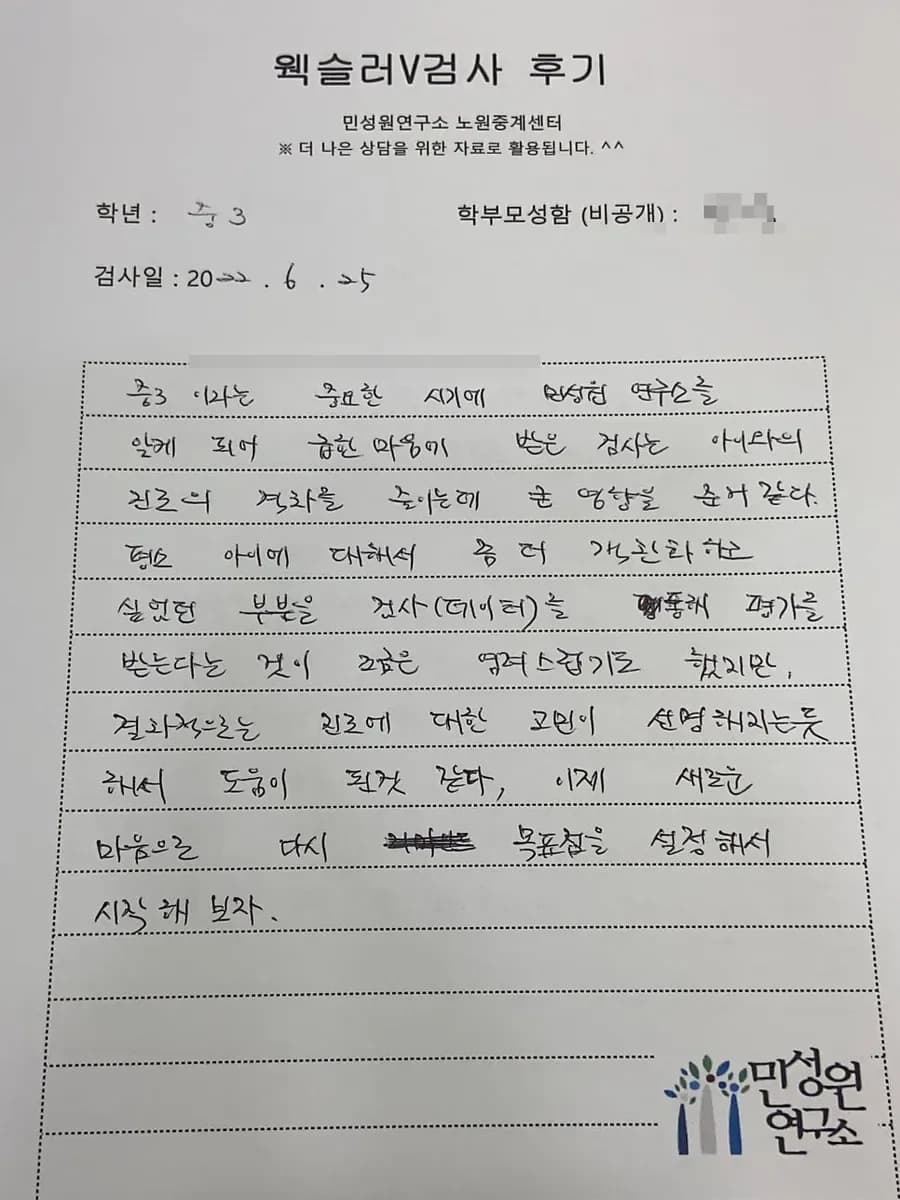 웩슬러V검사 후기
민성원연구소 노원중계센터
※ 더 나은 상담을 위한 자료로 활용됩니다. ^^
학년 : 중3
학부모성함 (비공개) :
검사일 : 2022 . 6 . 25
중3 이라는 중요한 시기에 민성원 연구소를
알게 되어 급한 마음에 받은 검사는 아이와의
진로의 격차를 줄이는데 큰 영향을 준거 같다.
평소 아이에 대해서 좀 더 객관화 하고
싶었던 부분을 검사(데이터)를 통해 평가를
받는다는 것이 조금은 염려스럽기도 했지만,
결과적으로는 진로에 대한 고민이 선명해지는듯
해서 도움이 된것 같다, 이제 새로운
마음으로 다시 목표점을 설정해서
시작해 보자.
민성원
연구소